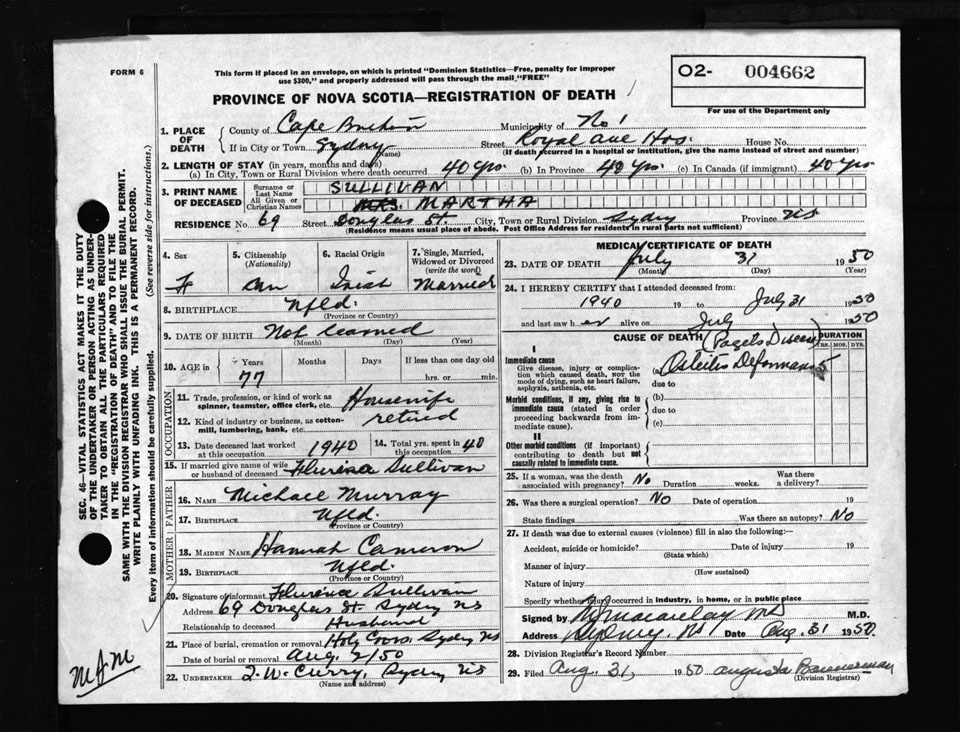 FORM 6
This form if placed in an envelope, on which is printed "Dominion Statistics—Free, penalty for improper
use $300," and properly addressed will pass through the mail "FREE"
O2- 004662
For use of the Department only
PROVINCE OF NOVA SCOTIA—REGISTRATION OF DEATH
1. PLACE OF DEATH
County of Cape Breton Municipality of No 1
If in City or Town Sydney (Name) Street Royal ave Hos. House No.
(If death occurred in a hospital or institution, give the name instead of street and number)
2. LENGTH OF STAY (in years, months and days)
(a) In City, Town or Rural Division where death occurred 40 yrs. (b) In Province 40 yrs. (c) In Canada (if immigrant) 40 yrs.
3. PRINT NAME OF DECEASED
Surname or Last Name SULLIVAN
All Given or Christian Names MRS. MARTHA
RESIDENCE No. 69 Street Douglas St. City, Town or Rural Division Sydney Province NS
(Residence means usual place of abode. Post Office Address for residents in rural parts not sufficient)
4. Sex F
5. Citizenship (Nationality) Can
6. Racial Origin Irish
7. Single, Married, Widowed or Divorced (write the word) Married
8. BIRTHPLACE Nfld.
(Province or Country)
9. DATE OF BIRTH Not learned
(Month) (Day) (Year)
10. AGE in Years 77 Months Days If less than one day old
hrs. or min.
OCCUPATION
11. Trade, profession, or kind of work as spinner, teamster, office clerk, etc. Housewife
12. Kind of industry or business, as cotton-mill, lumbering, bank, etc. retired
13. Date deceased last worked at this occupation 1940 14. Total yrs. spent in 40
15. If married give name of wife or husband of deceased Florence Sullivan
FATHER
16. NAME Michael Murray
17. BIRTHPLACE Nfld.
(Province or Country)
MOTHER
18. MAIDEN NAME Hannah Cameron
19. BIRTHPLACE Nfld.
(Province or Country)
20. Signature of informant Florence Sullivan
Address 69 Douglas St. Sydney NS
Relationship to deceased Husband
21. Place of burial, cremation or removal Holy Cross, Sydney NS
Date of burial or removal Aug 2/50
22. UNDERTAKER T. W. Curry, Sydney NS
(Name and address)
MEDICAL CERTIFICATE OF DEATH
23. DATE OF DEATH July 31 1950
(Month) (Day) (Year)
24. I HEREBY CERTIFY that I attended deceased from:
1940 19 to July 31 1950
and last saw her alive on July 1950
CAUSE OF DEATH (Pagets Disease) DURATION
YRS. MOS. DYS.
I
Immediate cause
Give disease, injury or complication which caused death, NOT the mode of dying, such as heart failure, asphyxia, asthenia, etc.
(a) Osteitis Deformans 5
due to
Morbid conditions, if any, giving rise to immediate cause (stated in order proceeding backwards from immediate cause).
(b)
due to
(c)
II
Other morbid conditions (if important) contributing to death but not causally related to immediate cause.
25. If a woman, was the death associated with pregnancy? No Duration weeks. Was there a delivery?
26. Was there a surgical operation? No Date of operation 19
State findings Was there an autopsy? No
27. If death was due to external causes (violence) fill in also the following:
Accident, suicide or homicide? Date of injury 19
(State which)
Manner of injury
(How sustained)
Nature of injury
Specify whether injury occurred in industry, in home, or in public place
Signed by Macaulay MD M.D.
Address Sydney. NS Date Aug. 31 1950.
28. Division Registrar's Record Number
29. Filed Aug. 31, 1950 Augusta Bannerman
(Division Registrar)
SEC. 46—VITAL STATISTICS ACT MAKES IT THE DUTY
OF THE UNDERTAKER OR PERSON ACTING AS UNDER-
TAKER TO OBTAIN ALL THE PARTICULARS REQUIRED
IN THE "REGISTRATION OF DEATH" AND TO FILE THE
SAME WITH THE DIVISION REGISTRAR WHO SHALL ISSUE THE BURIAL PERMIT.
WRITE PLAINLY WITH UNFADING INK. THIS IS A PERMANENT RECORD.
Every item of information should be carefully supplied. (See reverse side for instructions.)